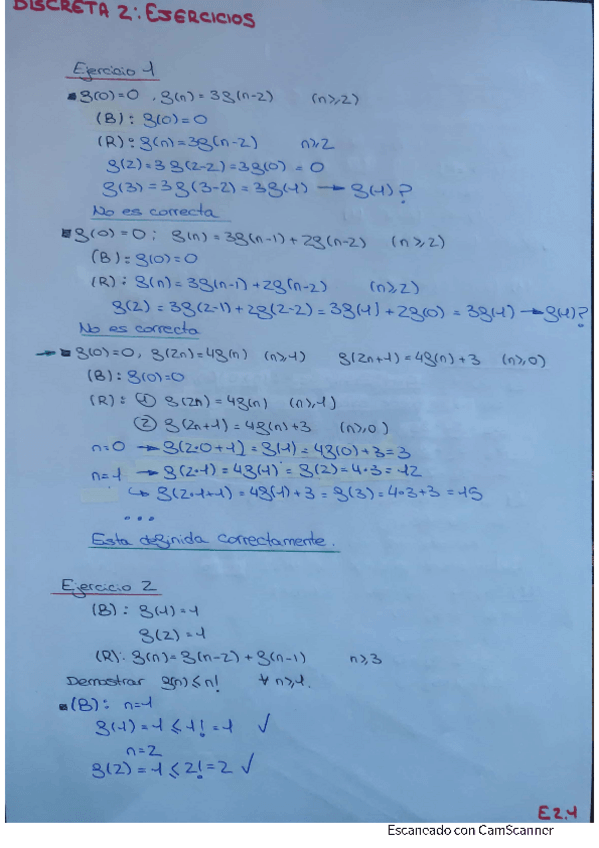 DISCRETA 2: EJERCICIOS
Ejercicio 1
▪ g(0)=0, g(n)=3g(n-2) (n≥2)
(B): g(0)=0
(R): g(n)=3g(n-2) n≥2
g(2)=3g(2-2)=3g(0)=0
g(3)=3g(3-2)=3g(1) → g(1)?
No es correcta
▪ g(0)=0: g(n)=3g(n-1)+2g(n-2) (n≥2)
(B): g(0)=0
(R): g(n)=3g(n-1)+2g(n-2) (n≥2)
g(2)=3g(2-1)+2g(2-2)=3g(1)+2g(0)=3g(1) → g(1)?
No es correcta
→ ▪ g(0)=0, g(2n)=4g(n) (n≥1) g(2n+1)=4g(n)+3 (n≥0)
(B): g(0)=0
(R): ① g(2n)=4g(n) (n≥1)
② g(2n+1)=4g(n)+3 (n≥0)
n=0 → g(2·0+1)=g(1)=4g(0)+3=3
n=1 → g(2·1)=4g(1)=g(2)=4·3=12
↳ g(2·1+1)=4g(1)+3=g(3)=4·3+3=15
...
Esta definida correctamente.
Ejercicio 2
(B): g(1)=1
g(2)=1
(R): g(n)=g(n-2)+g(n-1) n≥3
Demostrar g(n)≤n! ∀ n≥1.
▪ (B): n=1
g(1)=1≤1!=1 ✓
n=2
g(2)=1≤2!=2 ✓
E2.1
Escaneado con CamScanner